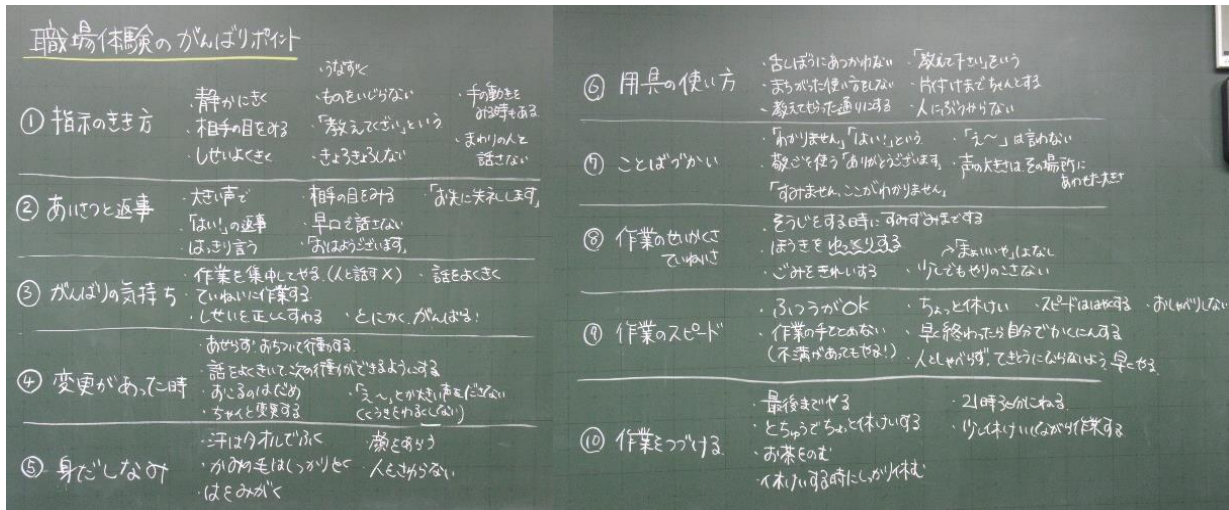 職場体験のがんばりポイント
① 指示のきき方
・静かにきく
・相手の目をみる
・しせいよくきく
・うなずく
・ものをいじらない
・「教えてください」という
・きょろきょろしない
・手の動きをみる時もある
・まわりの人と話さない
② あいさつと返事
・大きい声で
・「はい!」の返事
・はっきり言う
・相手の目をみる
・早口で話さない
・「おはようございます」
「お先に失礼します」
③ がんばりの気持ち
・作業を集中してやる(人と話す×)
・ていねいに作業する
・しせいを正しくすわる
・話をよくきく
・とにかく、がんばる!
④ 変更があった時
・あせらず、おちついて行動する
・話をよくきいて、次の行動ができるようにする
・おこるのはだめ
・ちゃんと変更する
・「え〜」とか大きい声をださない
(くうきをわるくしない)
⑤ 身だしなみ
・汗はタオルでふく
・かみの毛はしっかりとく
・はをみがく
・顔をあらう
・人をさわらない
⑥ 用具の使い方
・まちがった使い方をしない
・教えてもらった通りにする
・「教えて下さい」という
・片付けまでちゃんとする
・人にぶつからない
⑦ ことばづかい
・「わかりません」「はい!」という
・敬ごを使う「ありがとうございます」
「すみません、ここがわかりません」
・「え〜」は言わない
・声の大きさはその場所にあわせた大きさ
⑧ 作業のせいかくさ
ていねいさ
・そうじをする時にすみずみまでする
・ほうきをゆっくりする
・ごみをきれいする
→「まぁいいや」はなし
・少しでもやりのこさない
⑨ 作業のスピード
・ふつうがOK
・作業の手をとめない
(不満があってもやる!)
・ちょっと休けい
・早く終わったら自分でかくにんする
・スピードははやくする
・おしゃべりしない
・人としゃべらず、てきとうにならないよう、早くやる
⑩ 作業をつづける
・最後までやる
・とちゅうでちょっと休けいする
・お茶をのむ
・休けいする時にしっかり休む
・21時30分にねる
・少し休けいしながら作業する